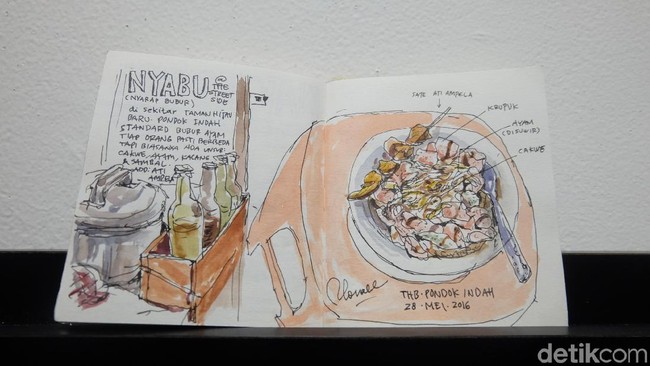 NYABU
@ THE STREET SIDE
(NYARAP BUBUR)
di SEKITAR TAMAN HIJAU
BARU. PONDOK INDAH
STANDARD BUBUR AYAM
TIAP ORANG PASTI BERBEDA
TAPI BIASANYA ADA UNTUK:
CAKWE, AYAM, KACANG
& SAMBAL
ADD: ATI
AMPELA
SATE ATI AMPELA
KRUPUK
AYAM
(DISUWIR)
CAKWE
THB. PONDOK INDAH
28. MEI. 2016
detikcom